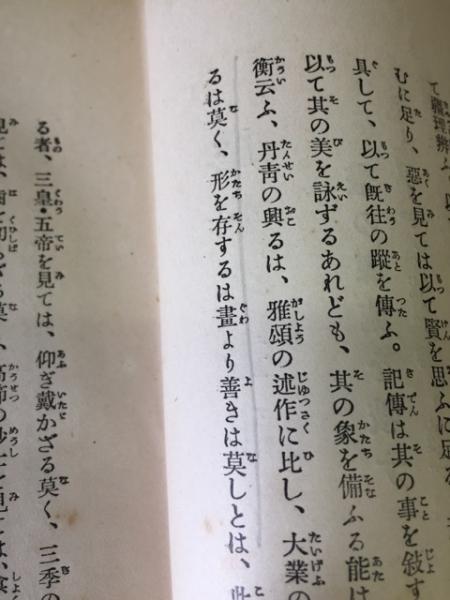 て難理辨ふ、以
むに足り、惡を見ては以て賢を思ふに足る、
具して、以て旣往の蹤を傳ふ。記傳は其の事を敍す
以て其の美を詠ずるあれども、其の象を備ふる能は
衡云ふ、丹青の興るは、雅頌の述作に比し、大業の
るは莫く、形を存するは畫より善きは莫しとは、此
る者、三皇・五帝を見ては、仰ぎ戴かざる莫く、三季の
見ては、齒を切らざる莫く、高節の妙士を見ては、食